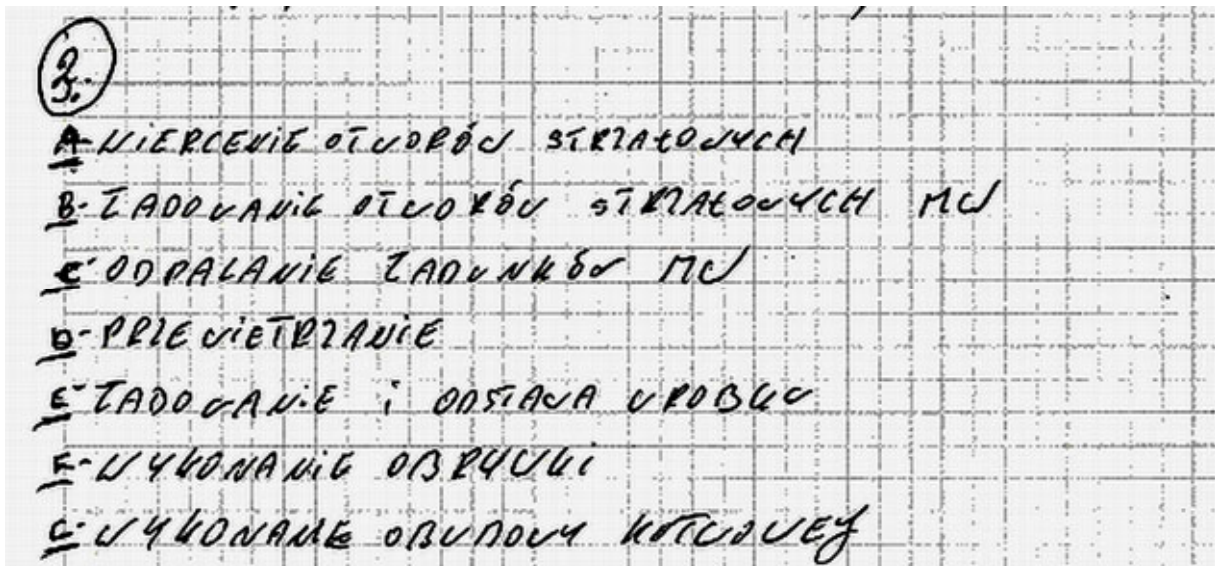 3.
A- WIERCENIE OTWORÓW STRZAŁOWYCH
B- ŁADOWANIE OTWORÓW STRZAŁOWYCH MW
C- ODPALANIE ŁADUNKÓW MW
D- PRZEWIETRZANIE
E- ŁADOWANIE i ODSTAWA UROBKU
F- WYKONANIE OBRYWKI
G- WYKONANIE OBUDOWY KOTWOWEJ